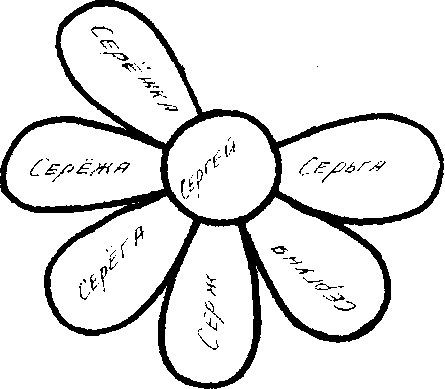 Серёжка
Серёжа
Сергей
Серьга
Серёга
Серж
Сергуня